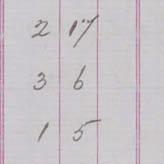 2 17
3 6
1 5